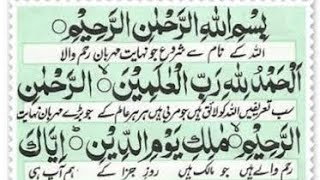 بِسْمِ اللّٰهِ الرَّحْمٰنِ الرَّحِیْمِ
اللہ کے نام سے شروع جو نہایت مہربان رحم والا
اَلْحَمْدُ لِلّٰهِ رَبِّ الْعٰلَمِیْنَ الرَّحْمٰنِ
سب تعریفیں اللہ کو لائق ہیں جو مربی ہیں ہر ہر عالم کے جو بڑے مہربان نہایت
الرَّحِیْمِ مٰلِكِ یَوْمِ الدِّیْنِ اِیَّاكَ
رحم والے ہیں جو مالک ہیں روز جزا کے ہم آپ ہی